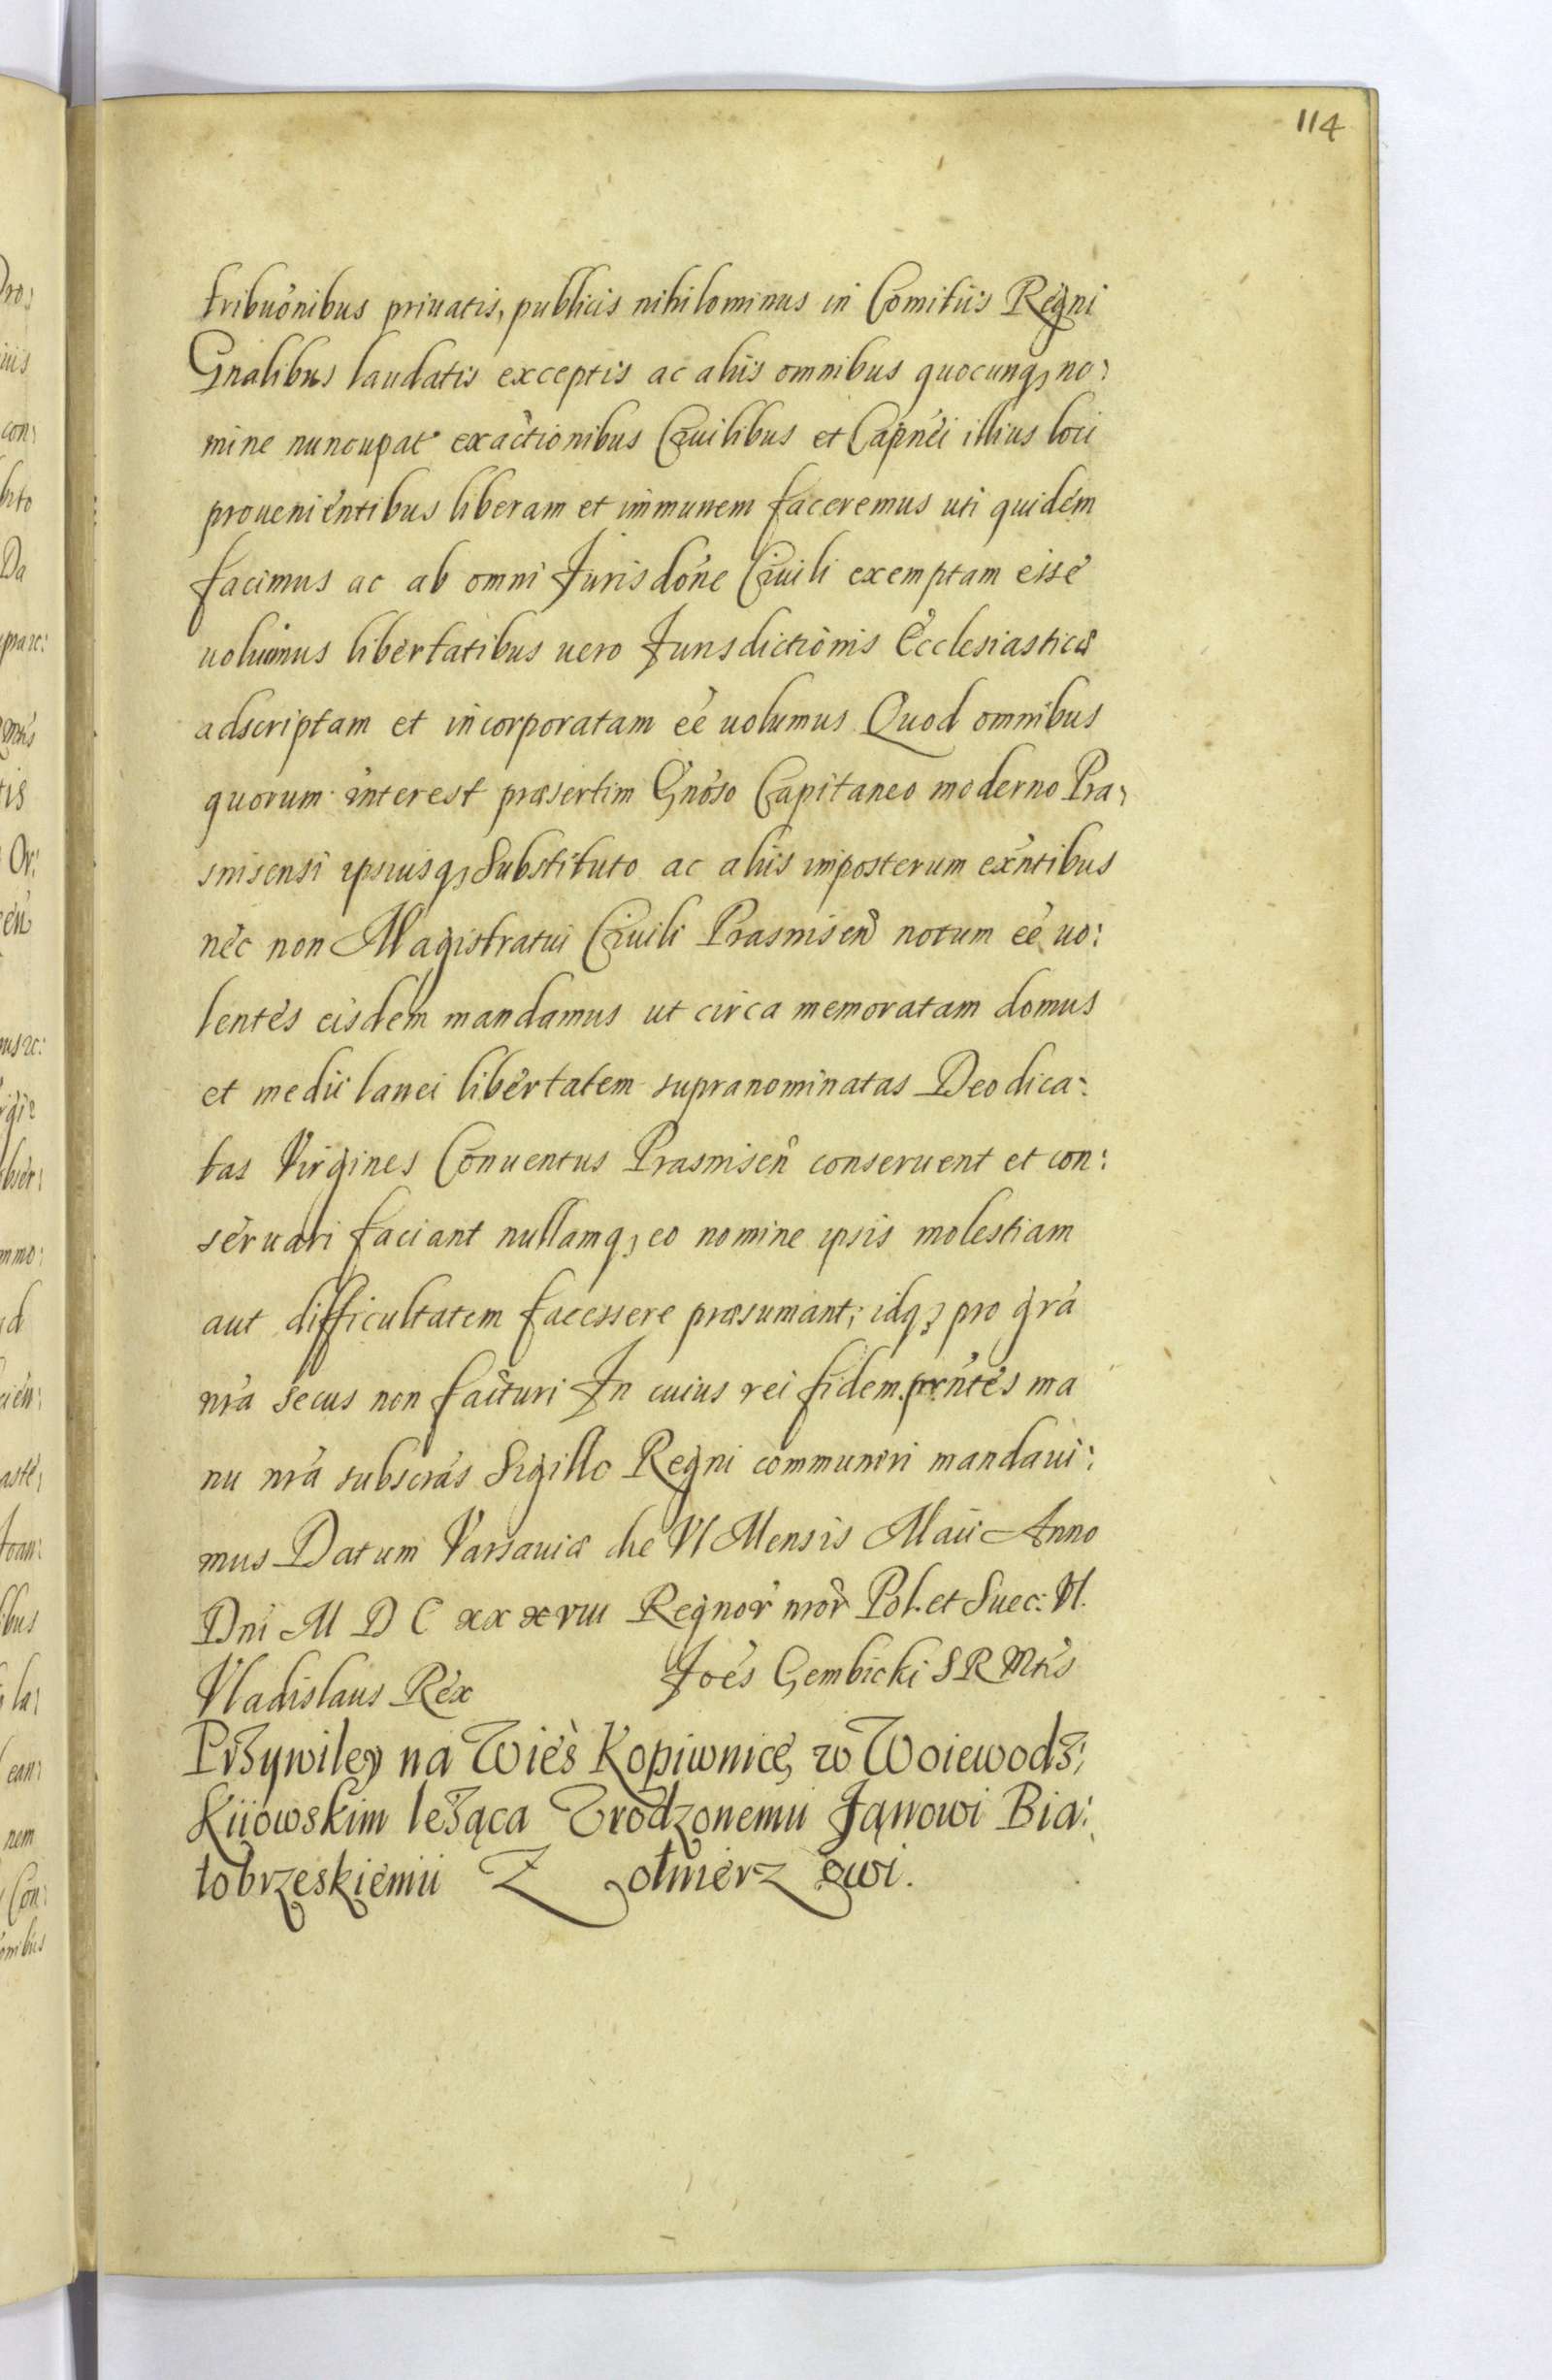 114
tribuónibus priuatis, publicis nihilominus in Comitiis Regni
Gnalibus laudatis exceptis ac aliis omnibus quocunq, no:
mine nuncupat exactionibus Ciuilibus et Capnéi illius loci
prouenientibus liberam et immunem faceremus uti quidem
facimus ac ab omni Jurisdóne Ciuili exemptam esse
uolumus libertatibus uero Jurisdictionis Ecclesiasticæ
adscriptam et incorporatam eé uolumus Quod omnibus
quorum interest præsertim Gnóso Capitaneo moderno Pra,
snisensi ipsiusq, Substituto ac aliis imposterum exñtibus
nec non Magistratui Ciuili Prasnisen notum eé uo:
lentes eisdem mandamus ut circa memoratam domus
et medii lanei libertatem supranominatas Deo dica:
tas Virgines Conuentus Prasnisen conseruent et con:
seruari faciant nullamq, eo nomine ipsis molestiam
aut difficultatem facessere præsumant; idq, pro grá
nrá secus non facturi In cuius rei fidem prñtes ma
nu nrá subscrás Sigillo Regni communiri mandaui:
mus Datum Varsauiæ die VI Mensis Maii Anno
Dni M D C xxxviii Regnor nror Pol. et Suec: VI.
Vladislaus Rex Joés Gembicki S R Mtis
Przywiley na Wieś Kopiwnicę w Woiewodz:
Kiiowskim leżąca Vrodzonemu Janowi Bia:
łobrzeskiemu Żołmierzowi.